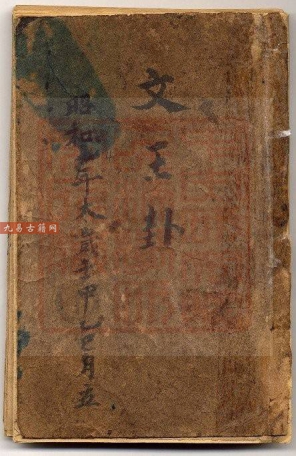 文王卦
昭和七年大歲壬申乙巳月五
九易古籍网